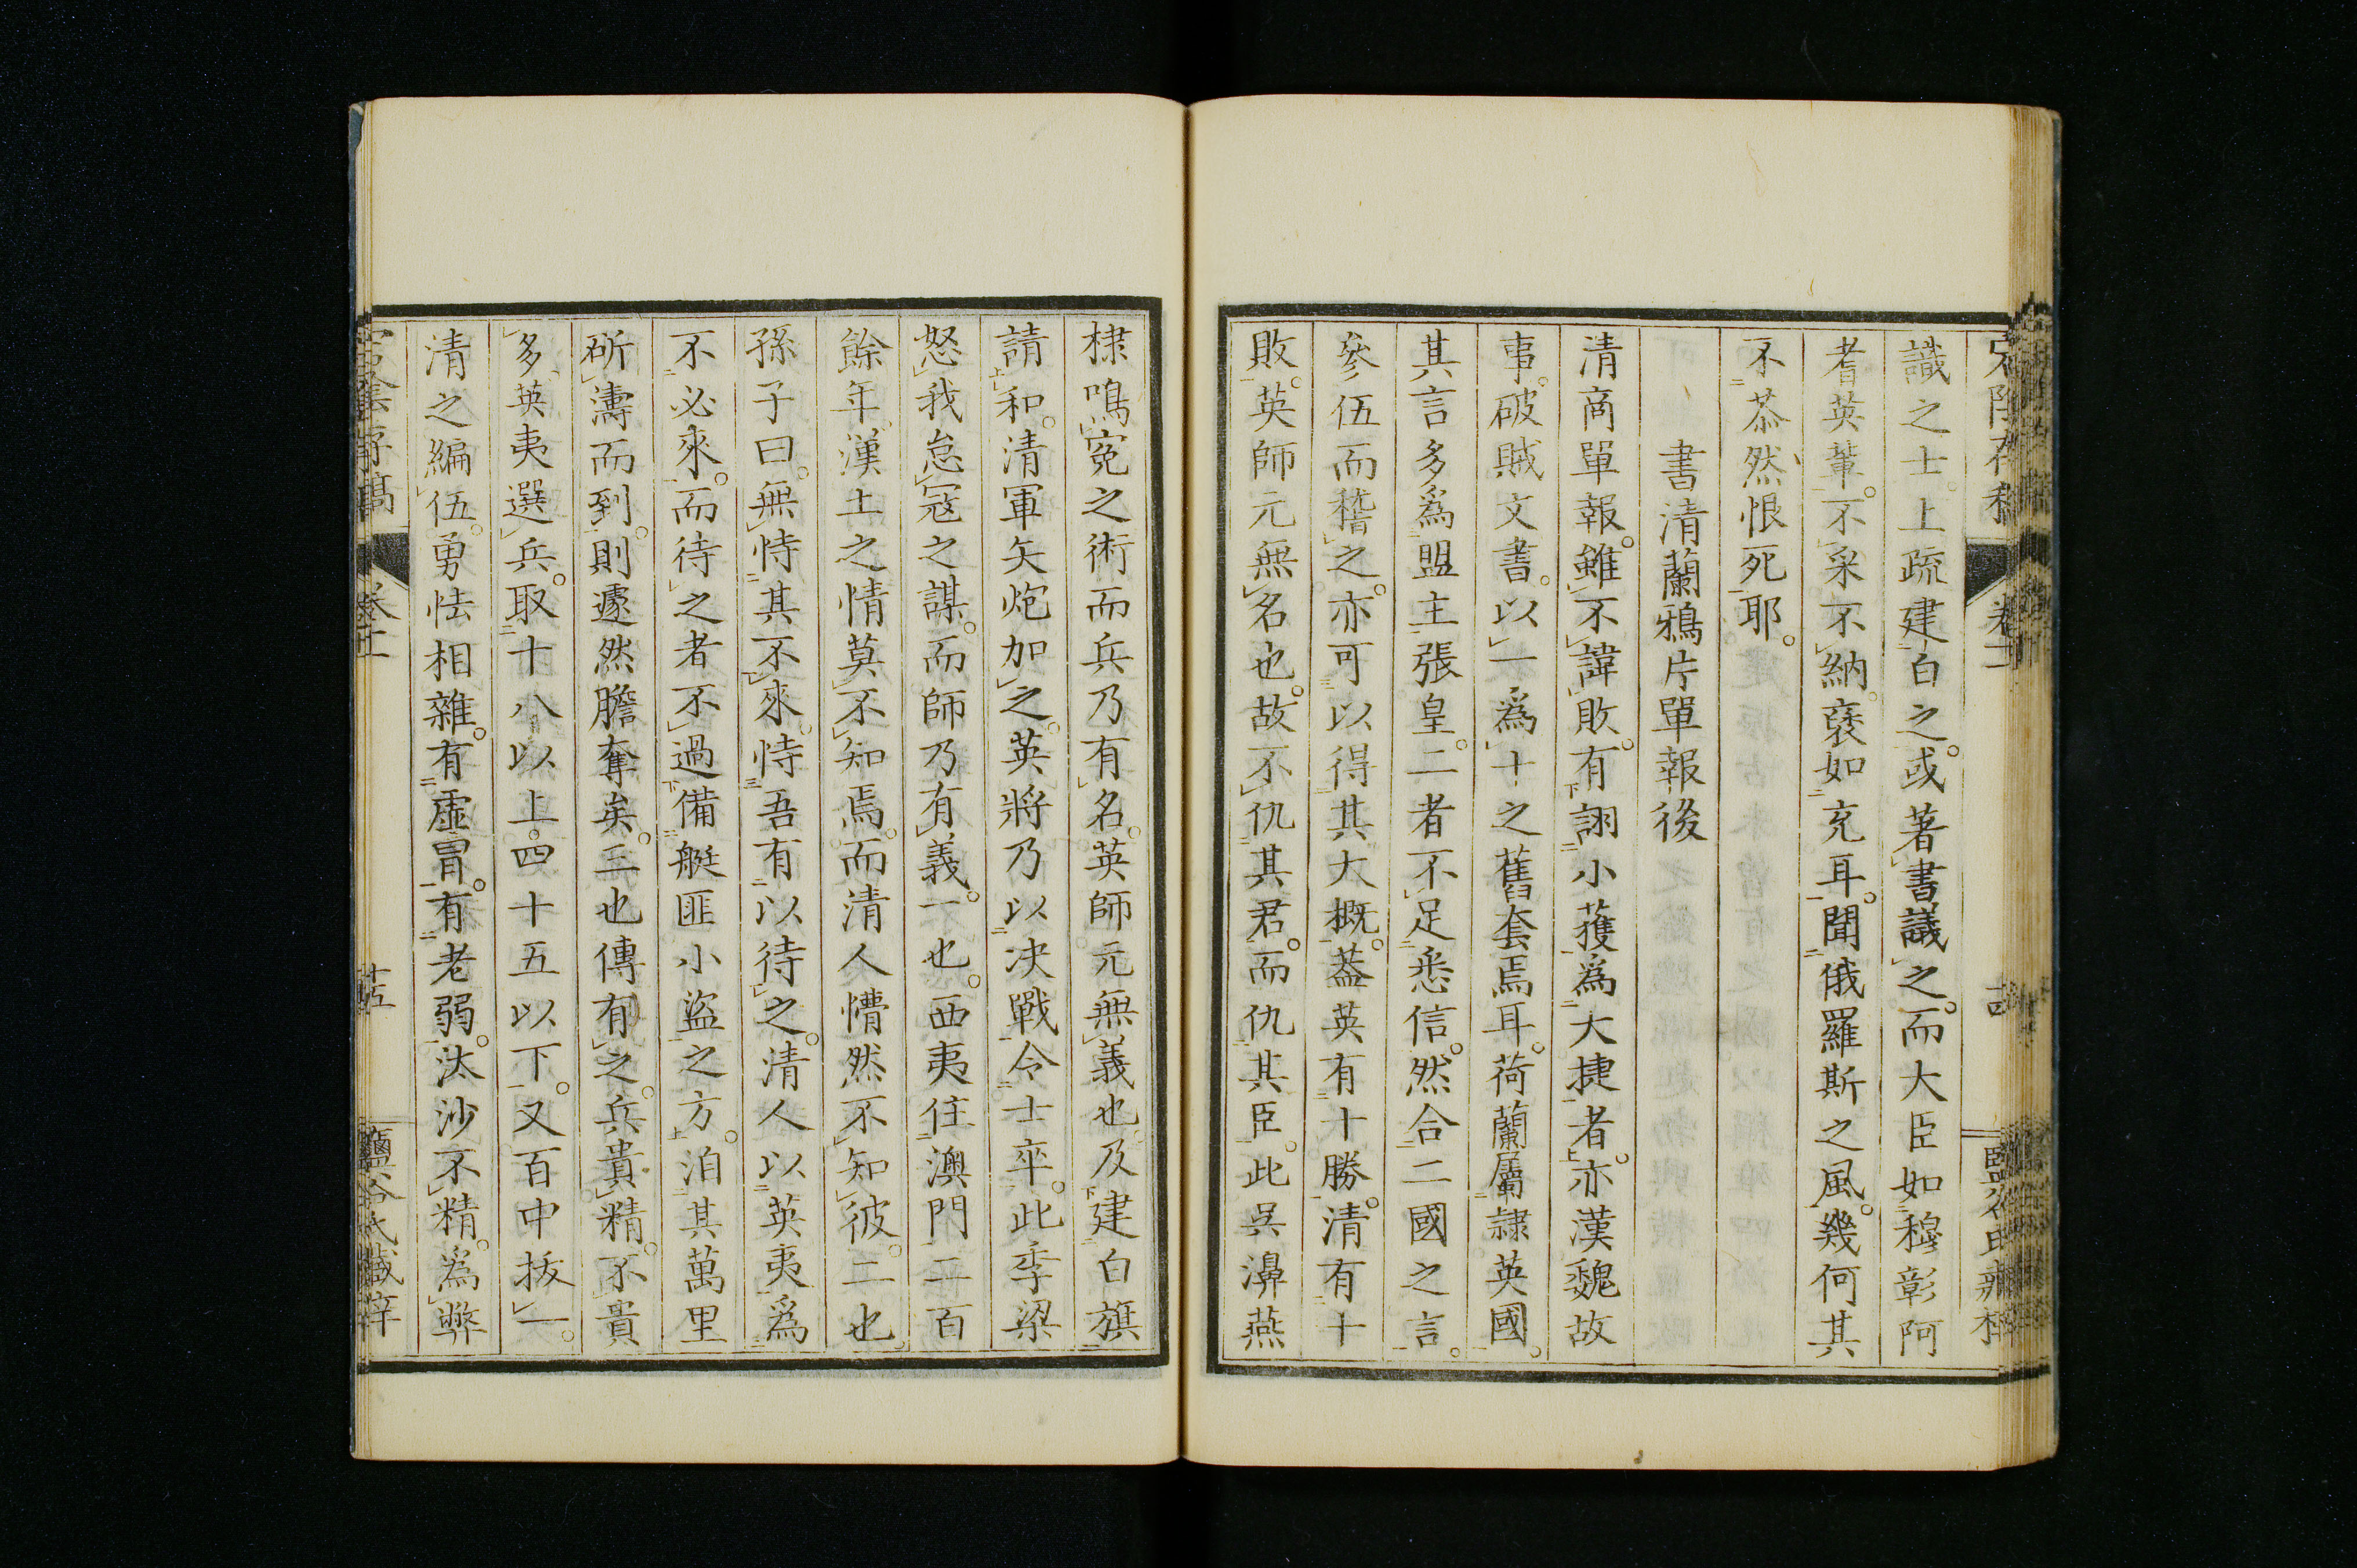 識之士上疏建白之。或著書議之。而大臣如穆彰阿
耆英輩。不采不納。褎如充耳。聞俄羅斯之風。幾何其
不恭然恨死耶。
書清蘭鴉片單報後
清商單報。雖不諱敗。有詡小獲為大捷者。亦漢魏故
事。破賊文書。以一為十之舊套焉耳。荷蘭屬隷英國。
其言多為盟主張皇。二者不足悉信。然合二國之言。
參伍而稽之。亦可以得其大概。葢英有十勝。清有十
敗。英師元無名也。故不仇其君。而仇其臣。此吳濞燕
棣鳴寃之術而兵乃有名。英師元無義也。及建白旗
請和。清軍矢炮加之。英將乃以决戰令士卒。此季梁
怒我怠寇之謀。而師乃有義。一也。西夷住澳門二百
餘年。漢土之情莫不知焉。而清人懵然不知彼。二也。
孫子曰。無恃其不來。恃吾有以待之。清人以英夷為
不必來。而待之者不過備艇匪小盜之方。洎其萬里
斫濤而到。則遽然膽奪矣。三也傳有之。兵貴精。不貴
多英夷選兵。取十八以上。四十五以下。又百中拔一。
清之編伍。勇怯相雜。有虛冒。有老弱。汰沙不精。為弊
卷二
十五